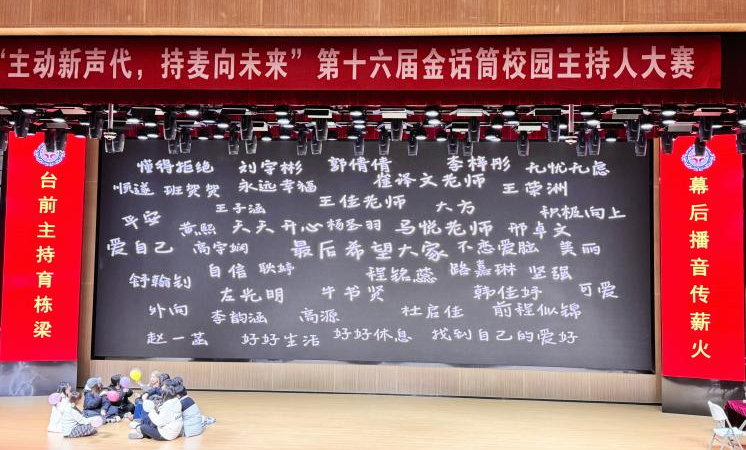 “主动新声代，持麦向未来”第十六届金话筒校园主持人大赛
台前主持育栋梁
懂得拒绝 刘宇彬 郭倩倩 李梓彤 无忧无虑
顺遂 班贺贺 永远幸福 崔译文老师 王荣洲
王子涵 王佳老师 大方 积极向上
平安 黄熙 天天开心 杨圣羽 马悦老师 邢卓文
爱自己 高宇娴 最后希望大家 不恋爱脑 美丽
舒翰钊 自信 耿婷 程铭蕊 路嘉琳 坚强
左光明 牛书贤 韩佳妤 可爱
外向 李韵涵 高源 杜启佳 前程似锦
赵一菡 好好生活 好好休息 找到自己的爱好
幕后播音传薪火